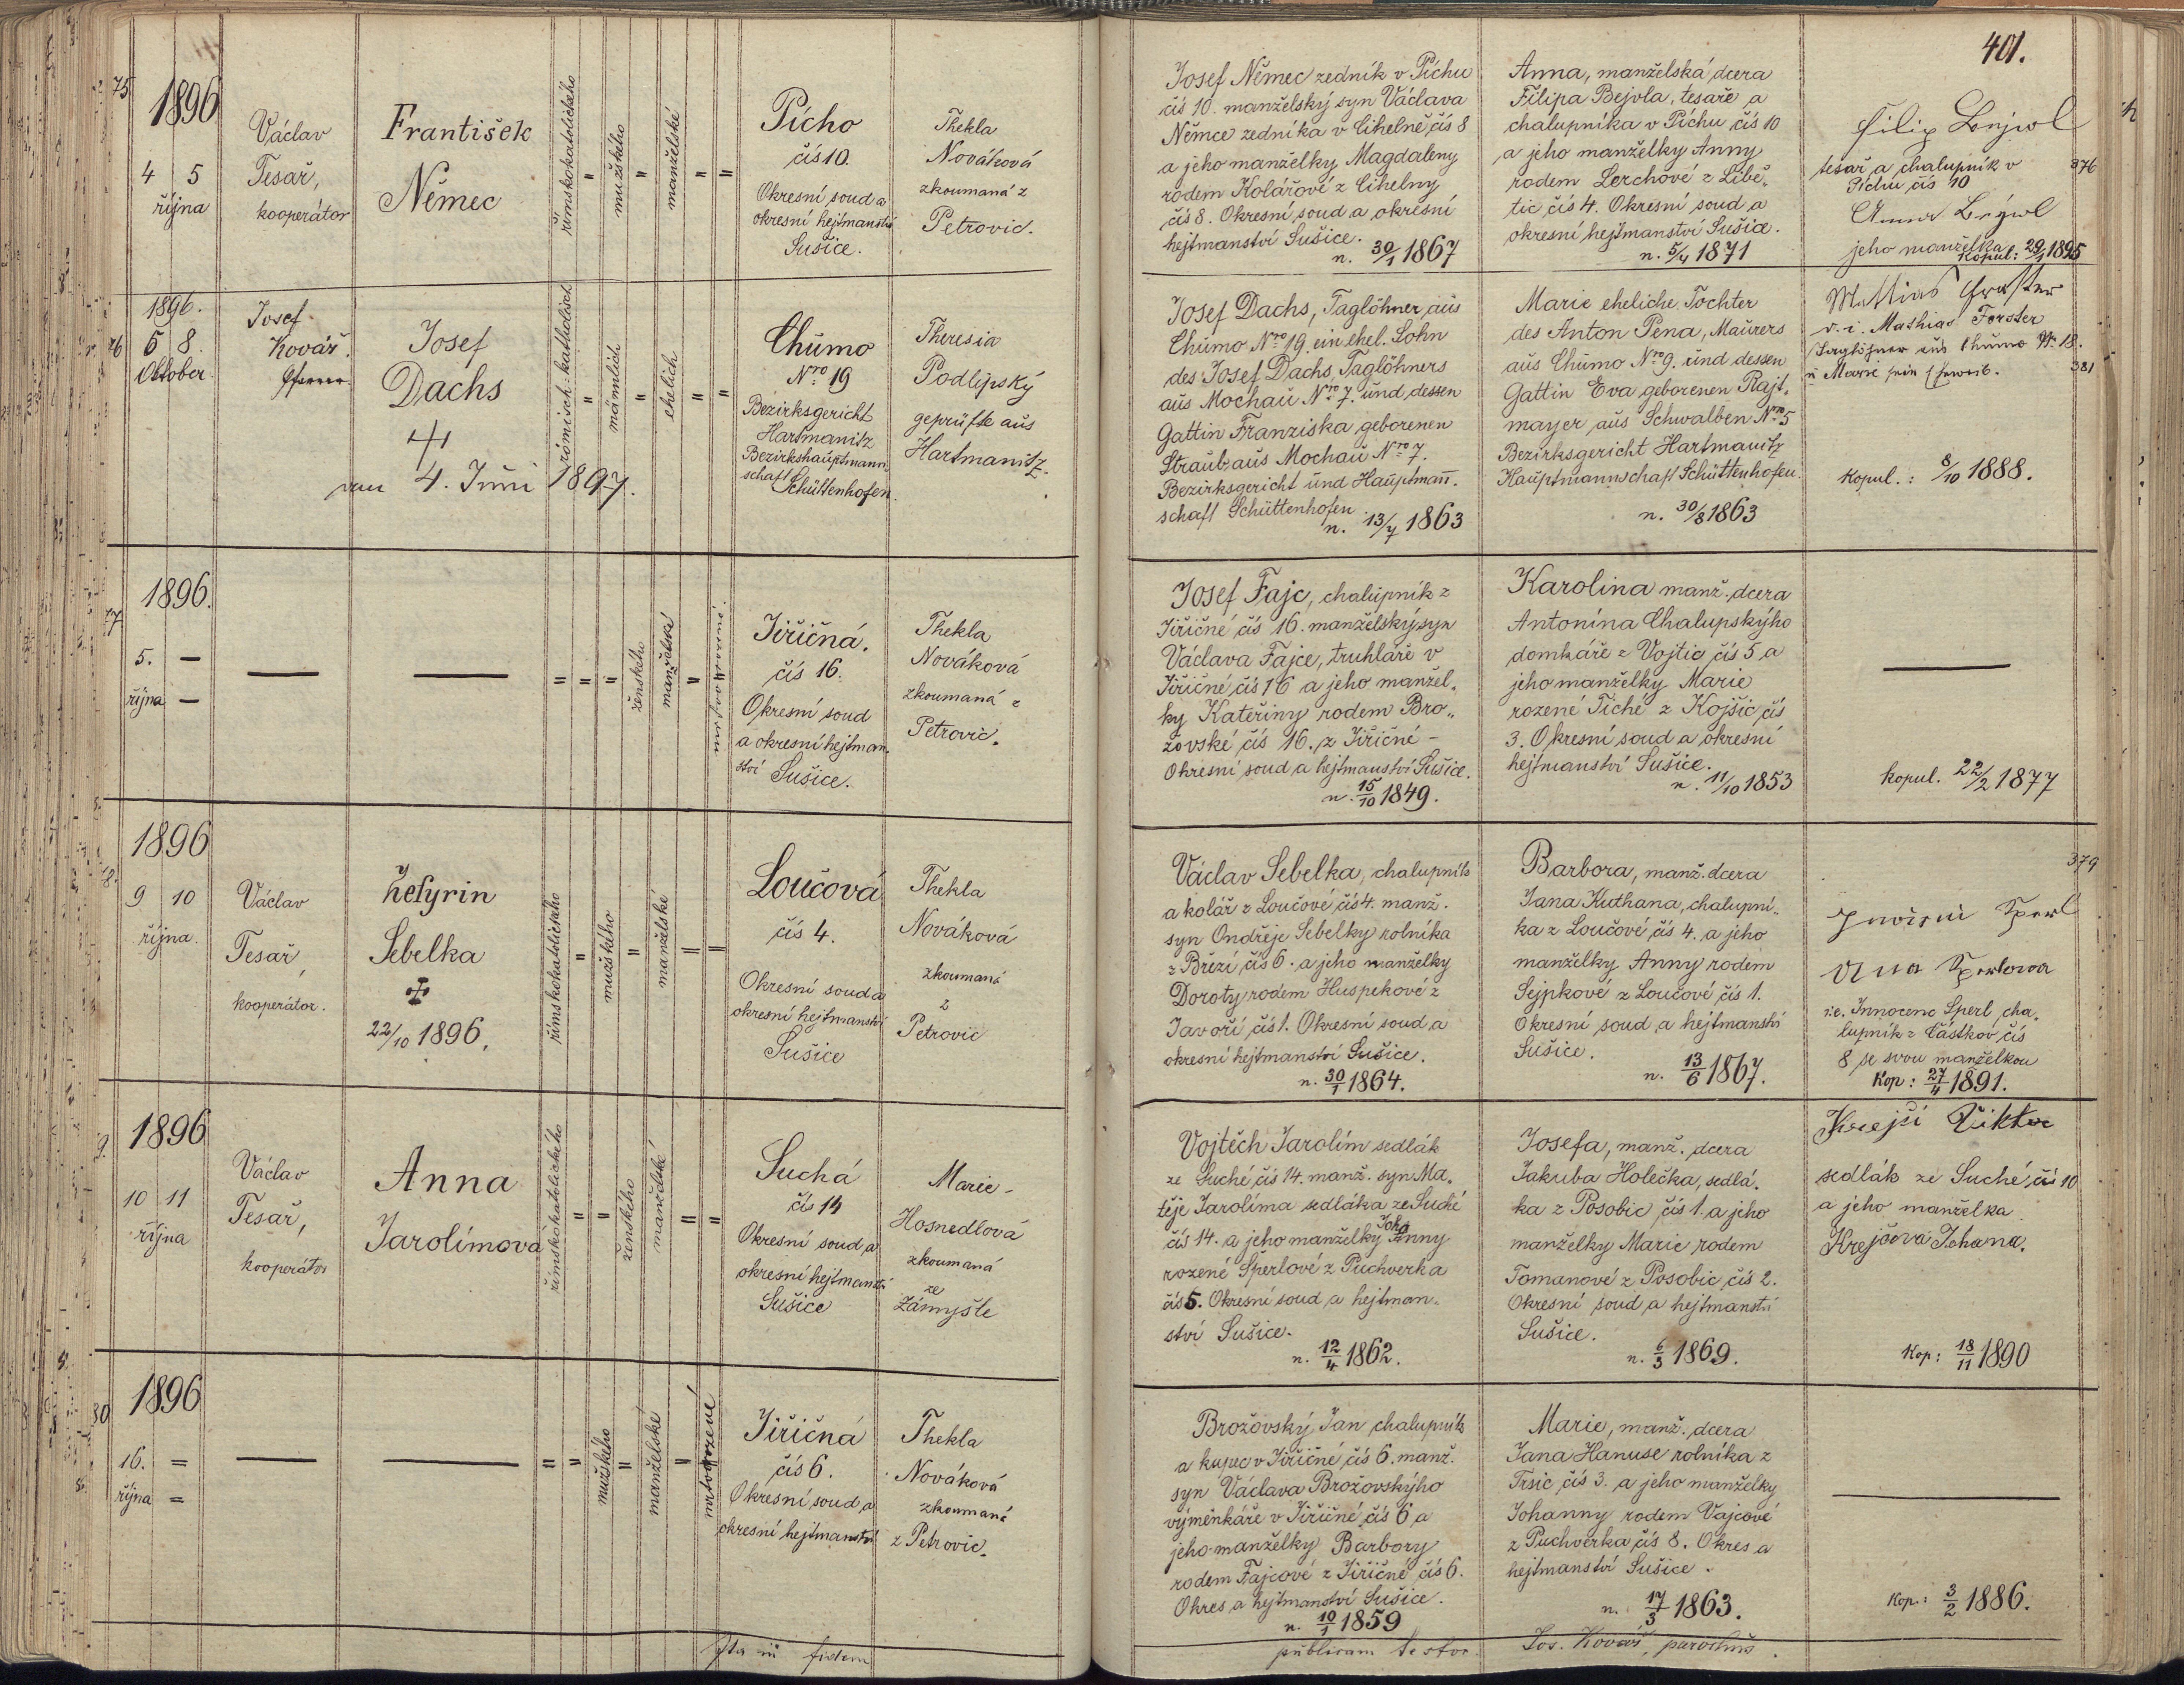 401.
75
1896
4 5
října
Václav
Tesař,
kooperátor
František
Němec
římskokatolického
=
mužského
=
manželské
=
=
Pícho
čís 10.
Okresní soud a
okresní hejtmanství
Sušice.
Thekla
Nováková
zkoumaná z
Petrovic.
Josef Němec zedník v Píchu
čís 10. manželský syn Václava
Němce zedníka v Cihelně čís 8
a jeho manželky Magdaleny
rodem Kolářové z Cihelny
čís 8. Okresní soud a okresní
hejtmanství Sušice.
n. 30/1 1867
Anna, manželská dcera
Filipa Bejvla, tesaře a
chalupníka v Píchu čís 10
a jeho manželky Anny
rodem Lerchové z Libě„
tic čís 4. Okresní soud a
okresní hejtmanství Sušice.
n. 5/4 1871
Filip Bejwl
tesař a chalupník v
Píchu čís 10
376
Anna Bejwl
jeho manželka
Kopul: 29/1 1895
76
1896.
6 8.
Oktober
Josef
Kovář.
Pfarrer
Josef
Dachs
am 4. Juni 1897.
römisch-katholisch
=
männlich
=
ehelich
=
=
Chumo
Nro 19
Bezirksgericht
Hartmanitz
Bezirkshauptmann
schaft
Schüttenhofen.
Theresia
Podlipský
geprüfte aus
Hartmanitz.
Josef Dachs, Taglöhner aus
Chumo Nro 19. ein ehel. Sohn
des Josef Dachs, Taglöhners
aus Mochau Nro 7. und dessen
Gattin Franziska geborenen
Straub aus Mochau Nro 7.
Bezirksgericht und Hauptmann.
schaft Schüttenhofen
n. 13/7 1863
Marie eheliche Tochter
des Anton Pena, Maurers
aus Chumo Nro 9. und dessen
Gattin Eva geborenen Rajt„
mayer aus Schwalben Nro 5
Bezirksgericht Hartmanitz
Hauptmannschaft Schüttenhofen.
n. 30/8 1863
Mathias Forster
v. i. Mathias Forster
Taglöhner aus Chumo N. 18.
u Marie sein Eheweib.
381
Kopul.: 8/10 1888.
77
1896.
5. —
října —
—
—
=
=
=
ženského
manželské
=
mrtvorozené
Jiřičná.
čís 16.
Okresní soud
a okresní hejtman„
ství Sušice.
Thekla
Nováková
zkoumaná z
Petrovic.
Josef Fajc, chalupník z
Jiřičné čís 16. manželský syn
Václava Fajce, truhláře v
Jiřičné čís 16 a jeho manžel„
ky Kateřiny rodem Bro„
žovské čís 16. z Jiřičné -
Okresní soud a hejtmanství Sušice.
n. 15/10 1849.
Karolina manž. dcera
Antonína Chalupskýho
domkáře z Vojtic čís 5 a
jeho manželky Marie
rozené Tiché z Kojšic čís
3. Okresní soud a okresní
hejtmanství Sušice.
n. 11/10 1853
—
kopul. 22/2 1877
78.
1896
9 10
října.
Václav
Tesař,
kooperátor.
Zefyrin
Sebelka
22/10 1896.
římskokatolického
=
mužského
=
manželské
=
=
Loučová
čís 4.
Okresní soud a
okresní hejtmanství
Sušice
Thekla
Nováková
zkoumaná
z
Petrovic
Václav Sebelka, chalupník
a kolář z Loučové čís 4. manž.
syn Ondřeje Sebelky rolníka
z Březí čís 6. a jeho manželky
Doroty rodem Huspekové z
Javoří čís 1. Okresní soud a
okresní hejtmanství Sušice.
n. 30/1 1864.
Barbora, manž. dcera
Jana Kuthana, chalupní„
ka z Loučové čís 4. a jeho
manželky Anny rodem
Sejpkové z Loučové čís 1.
Okresní soud a hejtmanství
Sušice.
n. 13/6 1867.
379
Sperl
Sperlova
i.e. Innocenc Sperl cha„
lupník z Částkov čís
8 se svou manželkou
Kop: 27/4 1891.
9.
1896
10 11
října
Václav
Tesař,
kooperátor
Anna
Jarolímova
římskokatolického
=
=
ženského
manželské
=
=
Suchá
čís 14
Okresní soud a
okresní hejtmanství
Sušice
Marie
Hosnedlová
zkoumaná
ze
Zámyšle
Vojtěch Jarolím sedlák
ze Suché čís 14. manž. syn Ma„
těje Jarolíma sedláka ze Suché
čís 14. a jeho manželky Joha Anny
rozené Šperlové z Puchverka
čís 5. Okresní soud a hejtman„
ství Sušice.
n. 12/4 1862.
Josefa, manž. dcera
Jakuba Holečka, sedlá„
ka z Posobic čís 1. a jeho
manželky Marie rodem
Tomanové z Posobic čís 2.
Okresní soud a hejtmanství
Sušice.
n. 6/3 1869.
Krejsi Viktor
sedlák ze Suché čís 10
a jeho manželka
Krejčova Johana.
Kop: 18/11 1890
80
1896
16. =
října =
—
—
=
=
mužského
=
manželské
=
mrtvorozené
Jiřičná
čís 6.
Okresní soud a
okresní hejtmanství
Thekla
Nováková
zkoumaná
z Petrovic.
Brožovský Jan chalupník
a kupec v Jiřičné čís 6. manž.
syn Václava Brožovskýho
výměnkáře v Jiřičné čís 6 a
jeho manželky Barbory
rodem Fajcové z Jiřičné čís 6.
Okres a hejtmanství Sušice.
n. 10/1 1859
Marie, manž. dcera
Jana Hanuse rolníka z
Trsic čís 3. a jeho manželky
Johanny rodem Vajcové
z Puchverka čís 8. Okres a
hejtmanství Sušice.
n. 17/3 1863.
—
Kop.: 3/2 1886.
Ita in fidem
publicam testor.
Jos. Kovář, parochus.